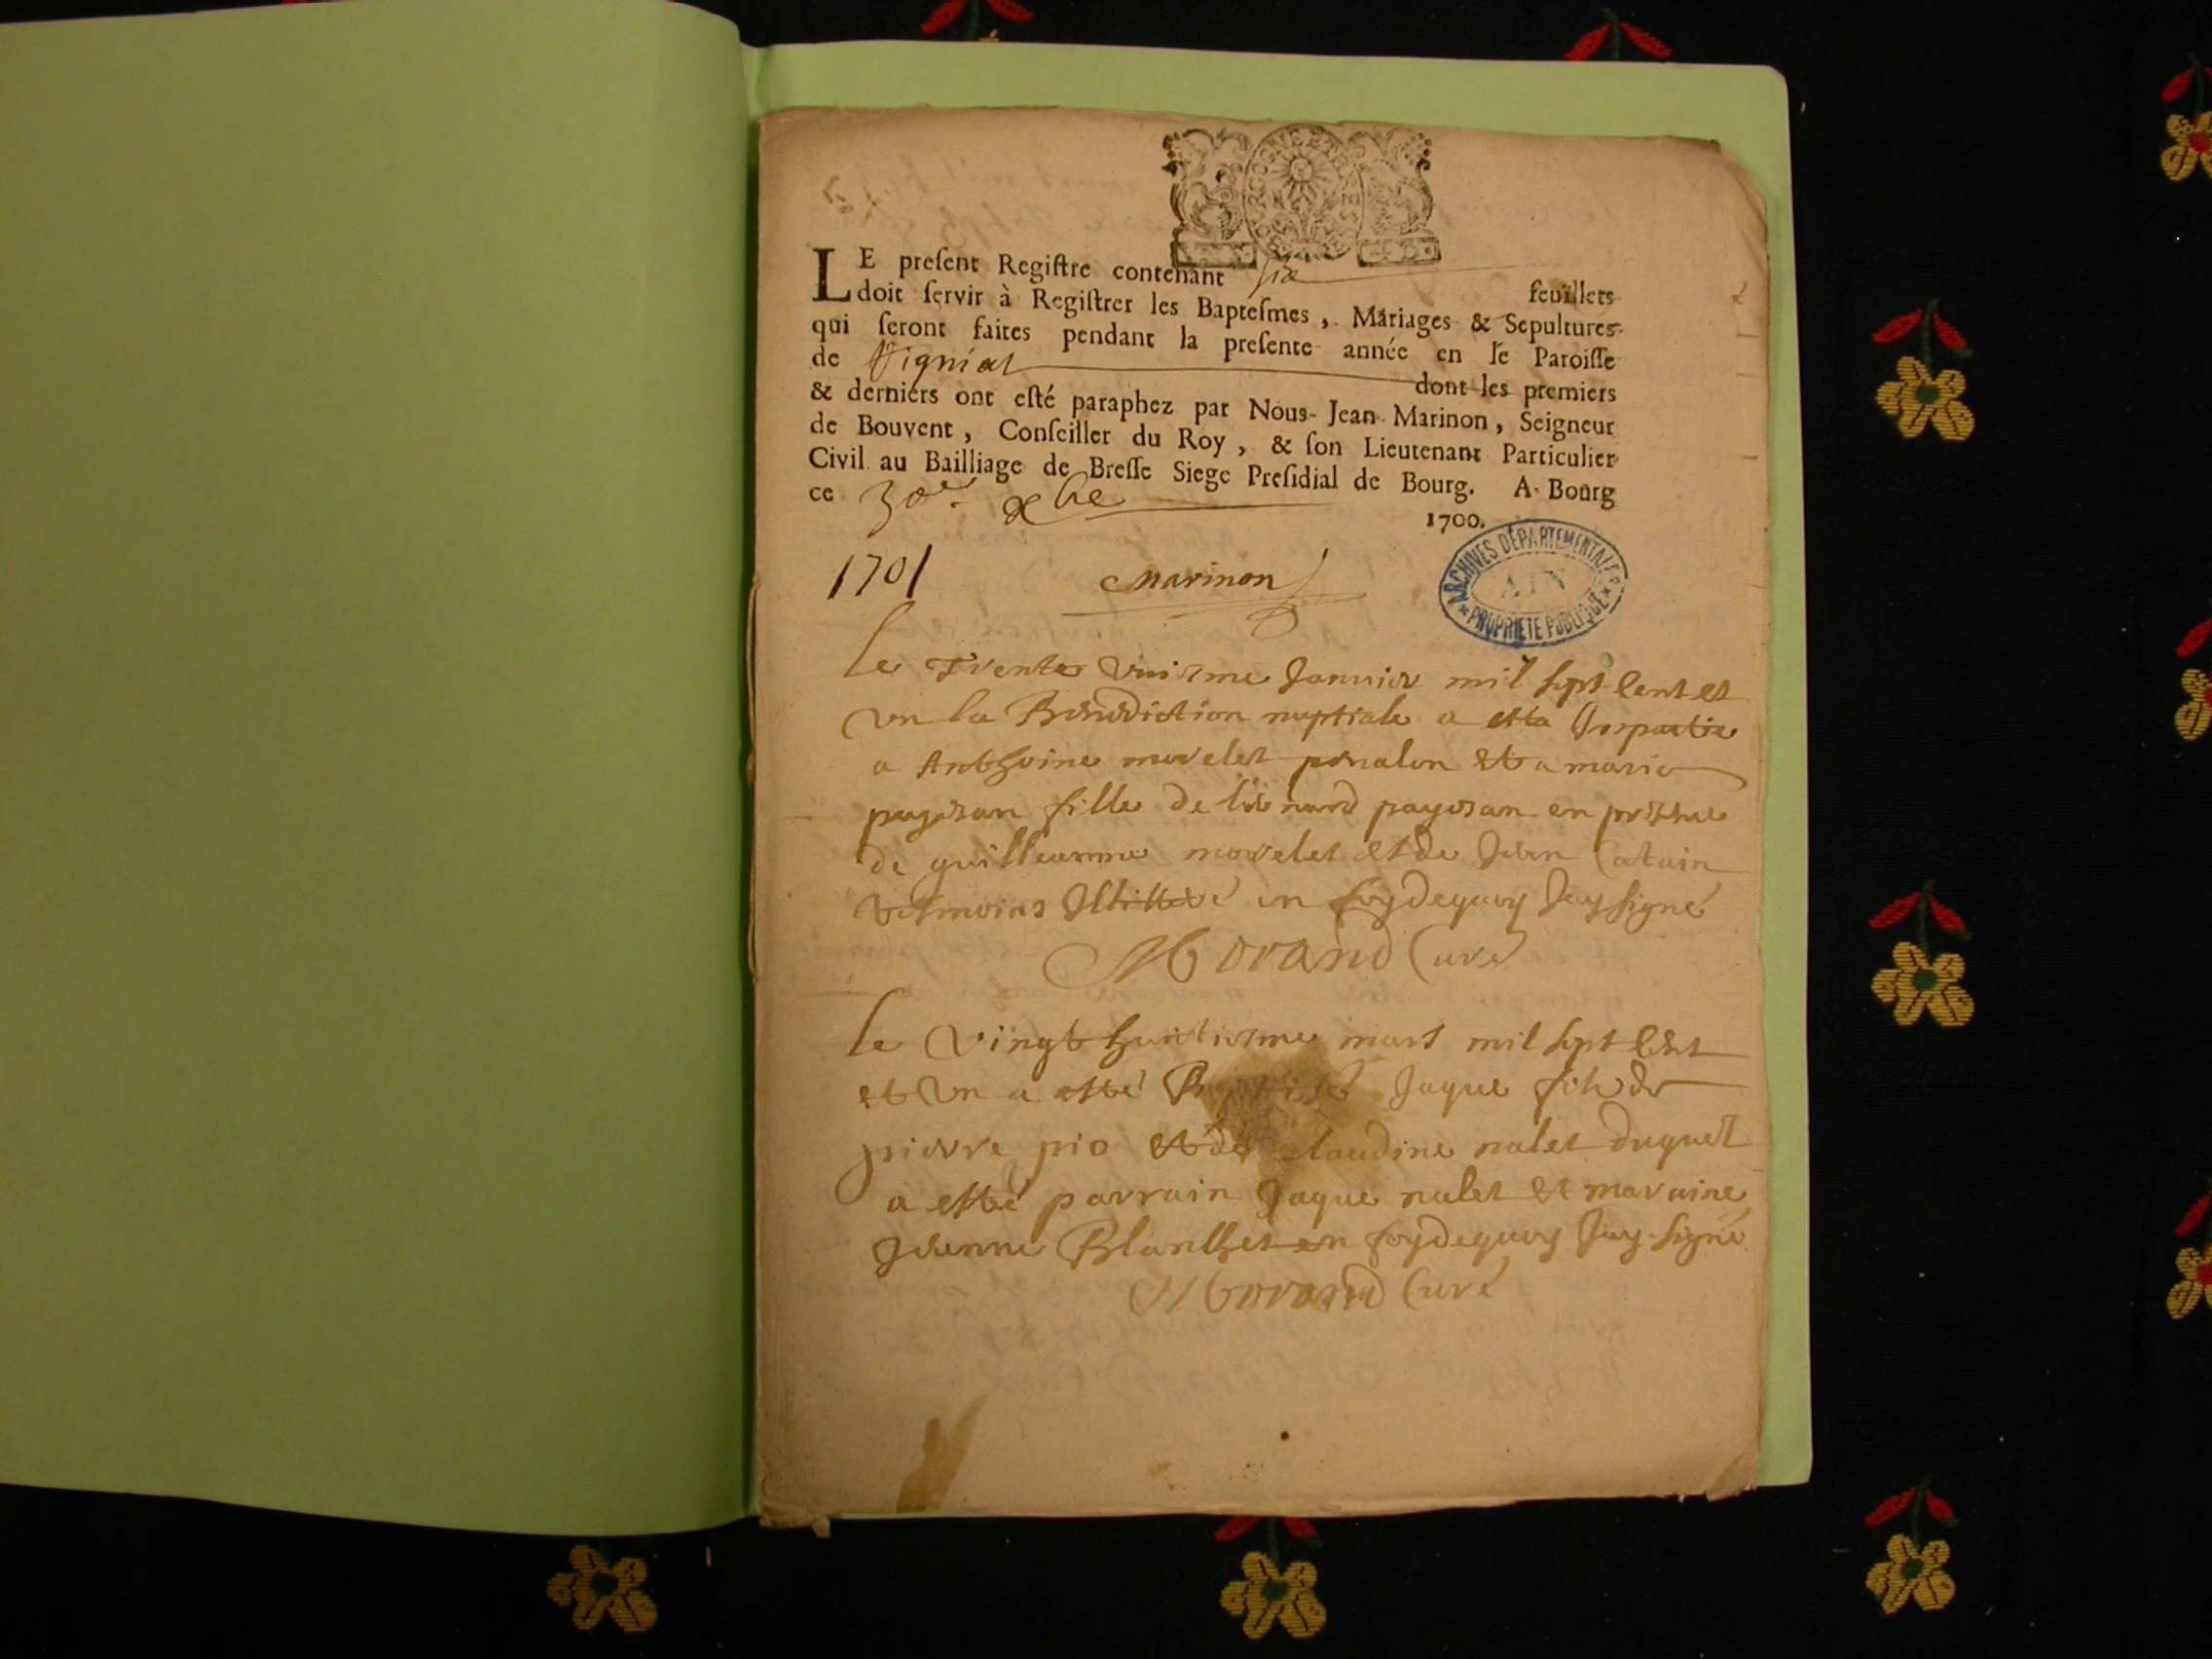 BOURGOGNE ET BRESSE
LE present Registre contenant six feuillets
doit servir à Registrer les Baptesmes, Mariages & Sepultures
qui seront faites pendant la presente année en le Paroisse
de Vigniat dont les premiers
& derniers ont esté paraphez par Nous Jean Marinon, Seigneur
de Bouvent, Conseiller du Roy, & son Lieutenant Particulier
Civil au Bailliage de Bresse Siege Presidial de Bourg. A Bourg
ce 30e xbre 1700.
1701 Marinon
ARCHIVES DÉPARTEMENTALES AIN PROPRIÉTÉ PUBLIQUE
le Trente uniesme Janvier mil sept Cent et
un la Benediction nuptiale a esta Impartie
a Anthoine morelet et a marie
fille de lienard en
de guilleaume morelet et de Jean
tesmoins Illitteré en foydequoy Jay signé
Morand Curé
le vingt huictiesme mars mil sept Cent
et un a esté Baptisé Jaque fils de
pierre pio et de claudine nalet duquel
a esté parrain Jaque nalet et maraine
Jeanne Blanchet en foydequoy Jay signé
Morand Curé